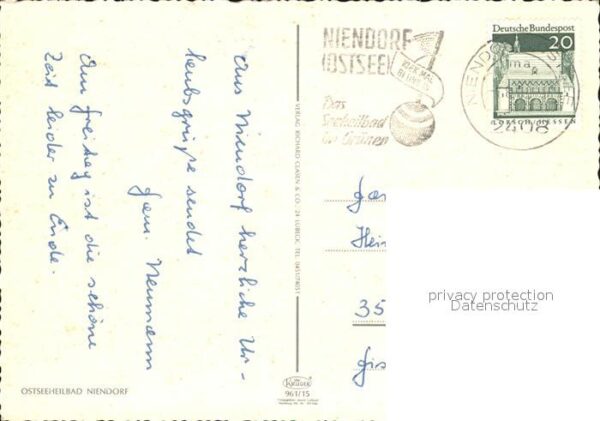 Aus Niendorf herzliche Ur-
laubsgrüße sendet
Fam. Neumann
Am Freitag ist die schöne
Zeit leider zu Ende.
OSTSEEHEILBAD NIENDORF
VERLAG RICHARD CLASEN & CO., 24 LÜBECK, TEL.
KRÜGER
961/15
NIENDORF
(OSTSEE)
Das
Seeheilbad
im Grünen
NIENDORF
2408
Deutsche Bundespost
20
LORSCH/HESSEN
Hein
35
privacy protection
Datenschutz